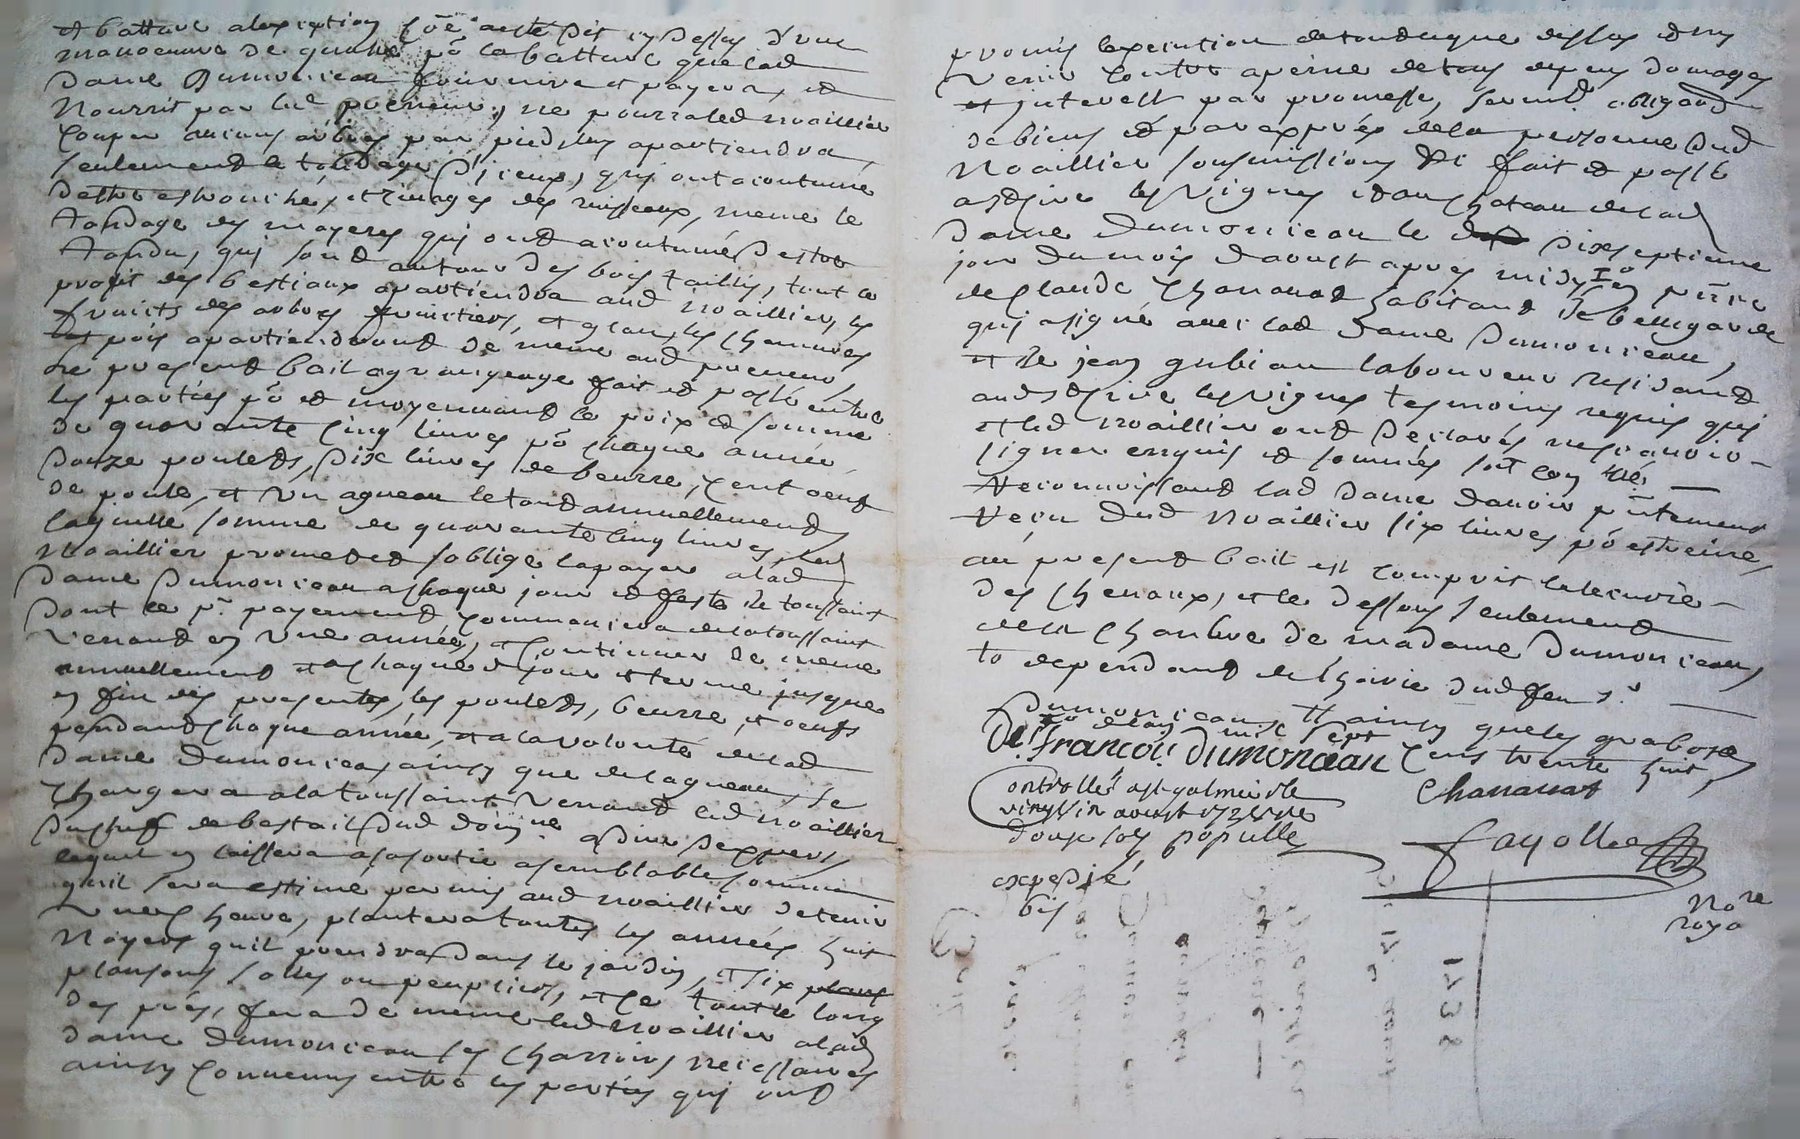 et batture alexeption come a esté dit cy dessus d'une
manoeuvre de quatre po la batture que lad
dame Dumonceau fournira et payera, et
Nourrit par led preneur, ne pourra led noaillier
Couper aucuns arbres par pied luy apartiendra
seulement le tondage d'iceux, qui ont acoutumé
destre esbrouchés, et rinages des ruisseaux, meme le
tondage des mayeres qui ont acoutumé destre
tondu, qui sont autour des bois taillis, tout le
profit des bestiaux apartiendra aud noaillier, les
fruicts des arbres fruictiers, et glan, les chenaves
et pois apartiendront de meme aud preneur,
Le present bail agrangeage fait et passé entre
les parties po et moyennant le prix et somme
de quarante cinq livres po chaque année,
douze poulets, dix livres de beurre, cent oeuf
de poule, et un agneau le tout annuellement
laquelle somme de quarante cinq livres, led
Noaillier promet et soblige la payer alad
Dame Dumonceau a chaque jour et feste de toussaint
Dont le pr payement commancera de la toussaint
venant en une année, et Continuer de meme
annuellement et a chaque jour et terme jusque
en fin des presentes, les poulets, beurre, et oeufs
pendant chaque année, et a la volonté de lad
Dame Dumonceau ainsy que de lagneau, se
Chargera a la toussaint venant led noaillier
Du bestail dud domne a dire dexperts
lequel en laissera a sa sortie a semblable somme
quil sera estimé permis aud noaillier de tenir
plantera toutes les années huit
Noyers quil prendra dans le jardin, et six plans
plansons salles ou peupliers, et ce tout le long
des prés, fera de meme led Noaillier alad
dame Dumonceau les charrois necessaires
ainsy Convenu entre les parties qui ont
promis lexecution de tout ce que dessus et ny
venir Contre a peine de tous depens domages
et interest par promesse, serment, obligaon
de biens et par exprés de la personne dud
Noaillier sousmissions &c fait et passé
les Vignes et au Chateau de lad
Dame Dumonceau le dixseptieme
jour du mois daoust apres midy en pnce
de Claude Chanavat habitant de bellegarde
qui a signé avec lad Dame Dumonceau,
et de jean gubian laboureur residant
les Vignes tesmoins requis qui
et led noaillier ont declarés ne scavoir
signer enquis et sommés
Reconnoissant lad Dame davoir pntement
Receu dud Noaillier six livres po estreine,
au present bail est compris
des Chenaux, et le dessous seulement
de la Chambre de madame Dumonceau,
to dependant de lhoirie dud feu sr
Dumonceau, &ainsy que les
mil sept
De St François Dumonceau Cens trente huit,
Controllé a st galmier le
vingt un aoust 1738 Receu
Douze sols
Chanavat
Fayolle
expedié
bis
Nore
roya
1738